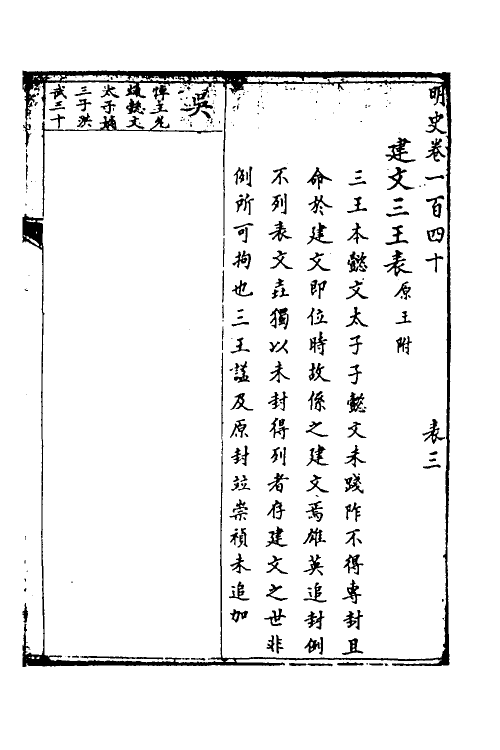 明史卷一百四十 表三
建文三王表 原王附
三王本懿文太子子懿文未踐阼不得專封且
命於建文即位時故係之建文焉雄英追封例
不列表文垚獨以未封得列者存建文之世非
例所可拘也三王諡及原封竝崇禎末追加
吳
悼王允
熥懿文
太子嫡
三子洪
武三十